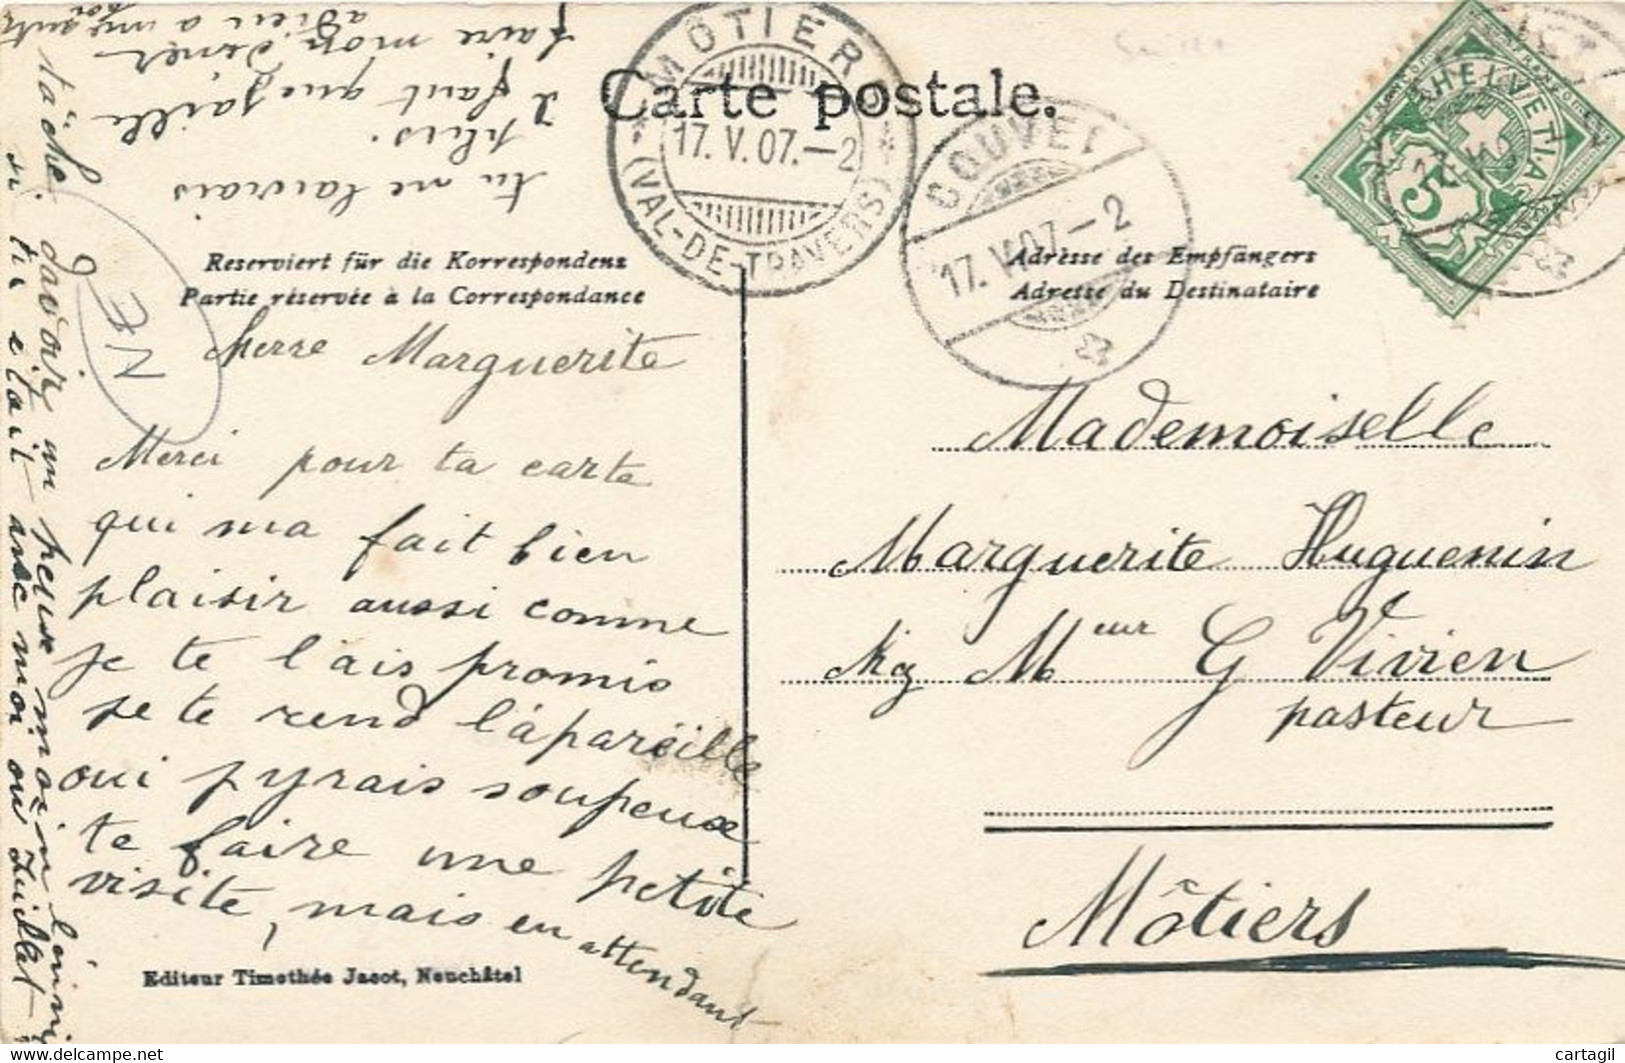 Carte postale.
MÔTIERS
17. V. 07.–2
(VAL-DE-TRAVERS)
COUVET
17. V. 07–2
HELVETIA
5
Reserviert für die Korrespondenz
Partie réservée à la Correspondance
Adresse des Empfängers
Adresse du Destinataire
NE
Marguerite
Merci pour ta carte
qui ma fait bien
plaisir aussi comme
je te l'ais promis
je te rend l'apareille
oui j'yrais
te faire une petite
visite, mais en attendant
tâche davoir un peux moin
si tu était avec moi ou
tu ne laurais
plus.
Il faut que jaille
faire mon diner
adieu a
Mademoiselle
Marguerite Huguenin
Meur G Vivien
pasteur
Môtiers
Editeur Timothée Jacot, Neuchâtel
www.delcampe.net
cartagil